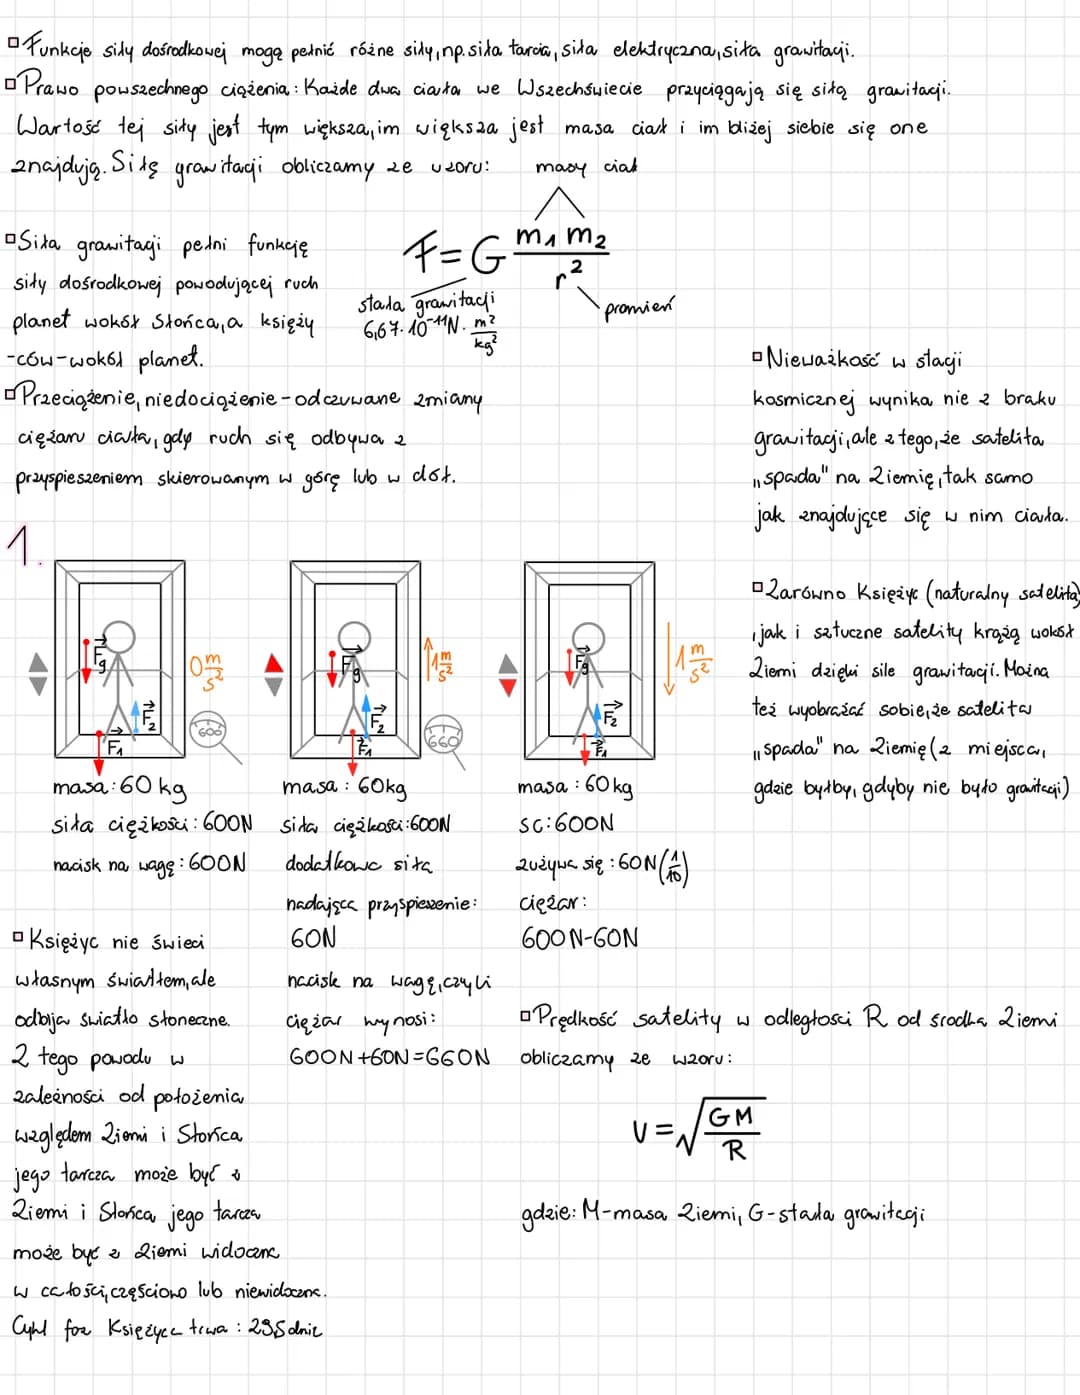 Funkcje siły dośrodkowej mogą pełnić różne siły, np. siła tarcia, siła elektryczna, siła grawitacji.
Prawo powszechnego ciążenia: Każde dwa ciała we Wszechświecie przyciągają się siłą grawitacji.
Wartość tej siły jest tym większa, im większa jest masa ciał i im bliżej siebie się one
znajdują. Siłę grawitacji obliczamy ze wzoru:
masy ciał
F = G m₁ m₂ / r²
stała grawitacji
6,67·10⁻¹¹ N· m²/kg²
promień
Siła grawitacji pełni funkcję
siły dośrodkowej powodującej ruch
planet wokół Słońca, a księży
-ców-wokół planet.
Przeciążenie, niedociążenie - odczuwane zmiany
ciężaru ciała, gdy ruch się odbywa z
przyspieszeniem skierowanym w górę lub w dół.
Nieważkość w stacji
kosmicznej wynika nie z braku
grawitacji, ale z tego, że satelita
„spada" na Ziemię, tak samo
jak znajdujące się w nim ciała.
Zarówno Księżyc (naturalny satelita)
, jak i sztuczne satelity krążą wokół
Ziemi dzięki sile grawitacji. Można
też wyobrażać sobie, że satelita
„spada" na Ziemię (z miejsca,
gdzie byłby, gdyby nie było grawitacji)
1.
Fg F₂ F₁ 0 m/s² 600
Fg F₂ F₁ 1 m/s² 660
Fg F₂ F₁ 1 m/s²
masa: 60 kg
siła ciężkości: 600N
nacisk na wagę: 600N
masa: 60kg
siła ciężkości: 600N
dodatkowa siła
nadająca przyspieszenie:
60N
nacisk na wagę, czyli
ciężar wynosi:
600N+60N=660N
masa: 60 kg
SC: 600N
zużywa się: 60N (1/10)
ciężar:
600N-60N
Księżyc nie świeci
własnym światłem, ale
odbija światło słoneczne.
Z tego powodu w
zależności od położenia
względem Ziemi i Słońca
jego tarcza może być z
Ziemi i Słońca, jego tarcza
może być z Ziemi widoczna
w całości, częściowo lub niewidoczna.
Cykl faz Księżyca trwa: 29,5 dnia
Prędkość satelity w odległości R od środka Ziemi
obliczamy ze wzoru:
V = √(GM/R)
gdzie: M-masa Ziemi, G-stała grawitacji